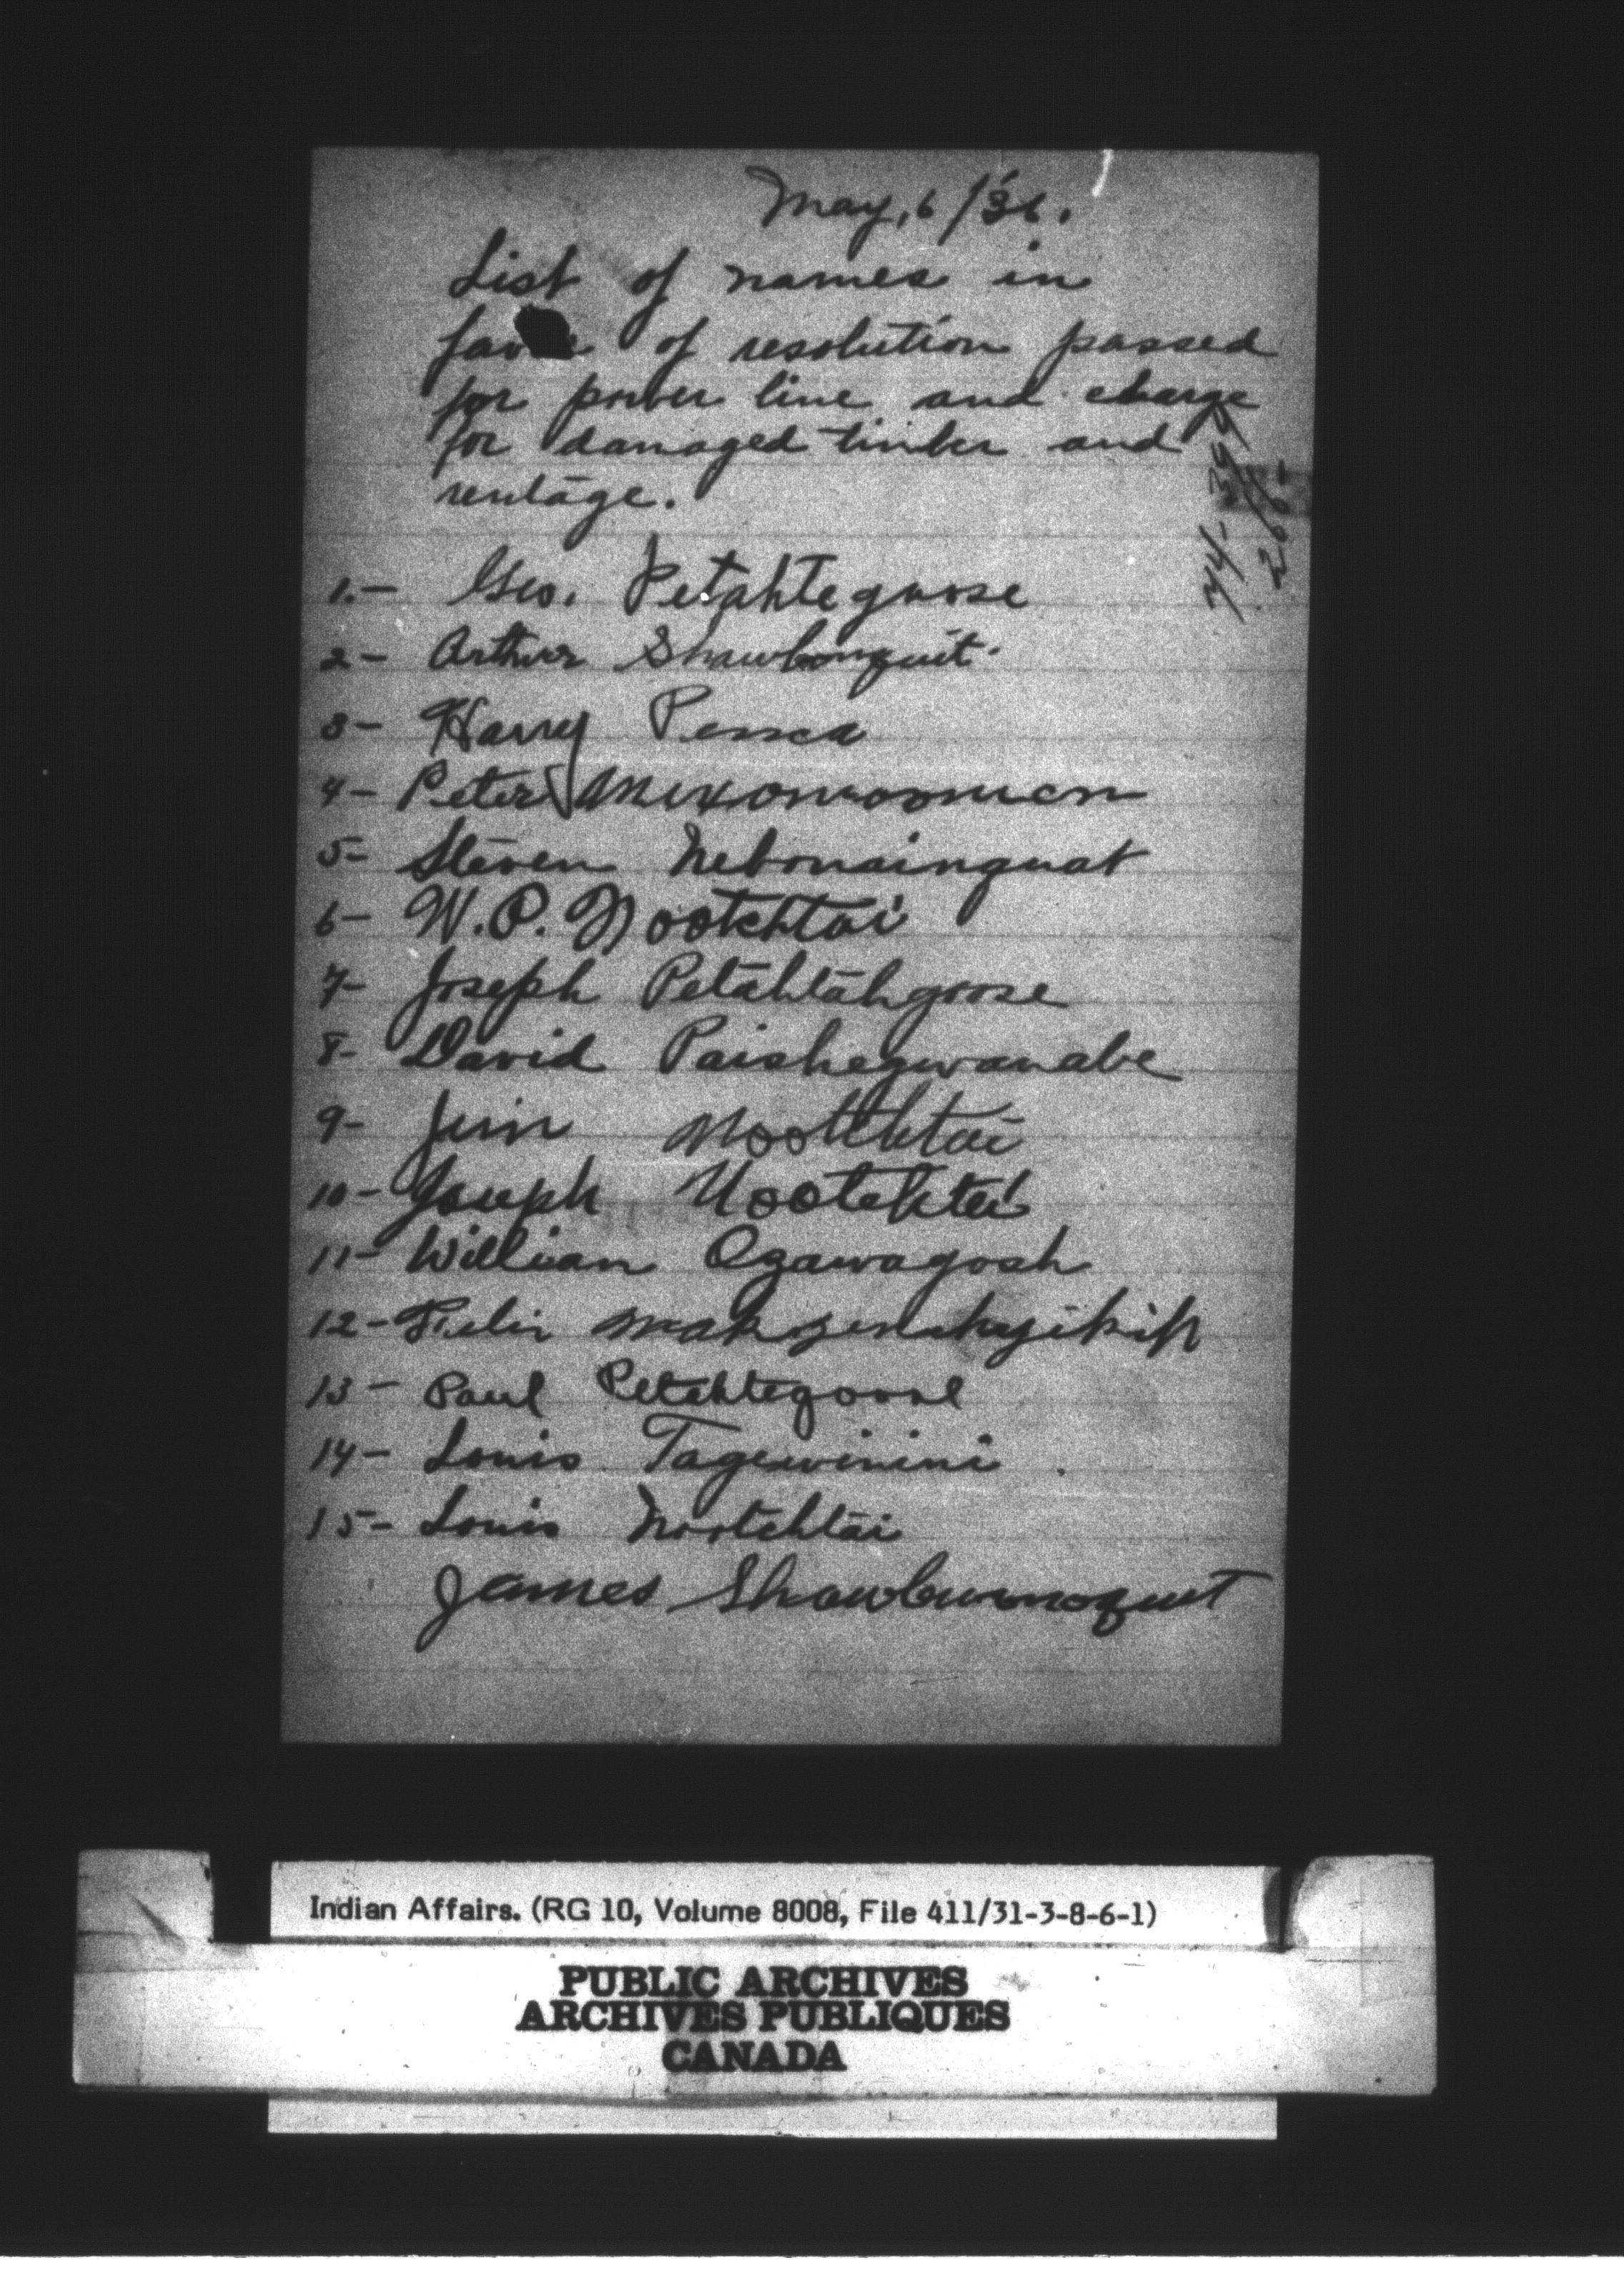 May, 6/36.
List of names in
of resolution passed
for power line and charge
for damaged timber and
rentage.
1.- Geo. Petahtegoose
2- Arthur Shawbonquit
3- Harry
4- Peter
5- Steven Nebonainquat
6- W.P. Nootchtai
7- Joseph Petahtahgoose
8- David Paishegwanabe
9- Jim Nootchtai
10- Joseph Nootchtai
11- William Ozawagosh
12- Felix
13- Paul Petahtegoose
14- Louis Tagewinini
15- Louis Nootchtai
James
Indian Affairs. (RG 10, Volume 8008, File 411/31-3-8-6-1)
PUBLIC ARCHIVES
ARCHIVES PUBLIQUES
CANADA